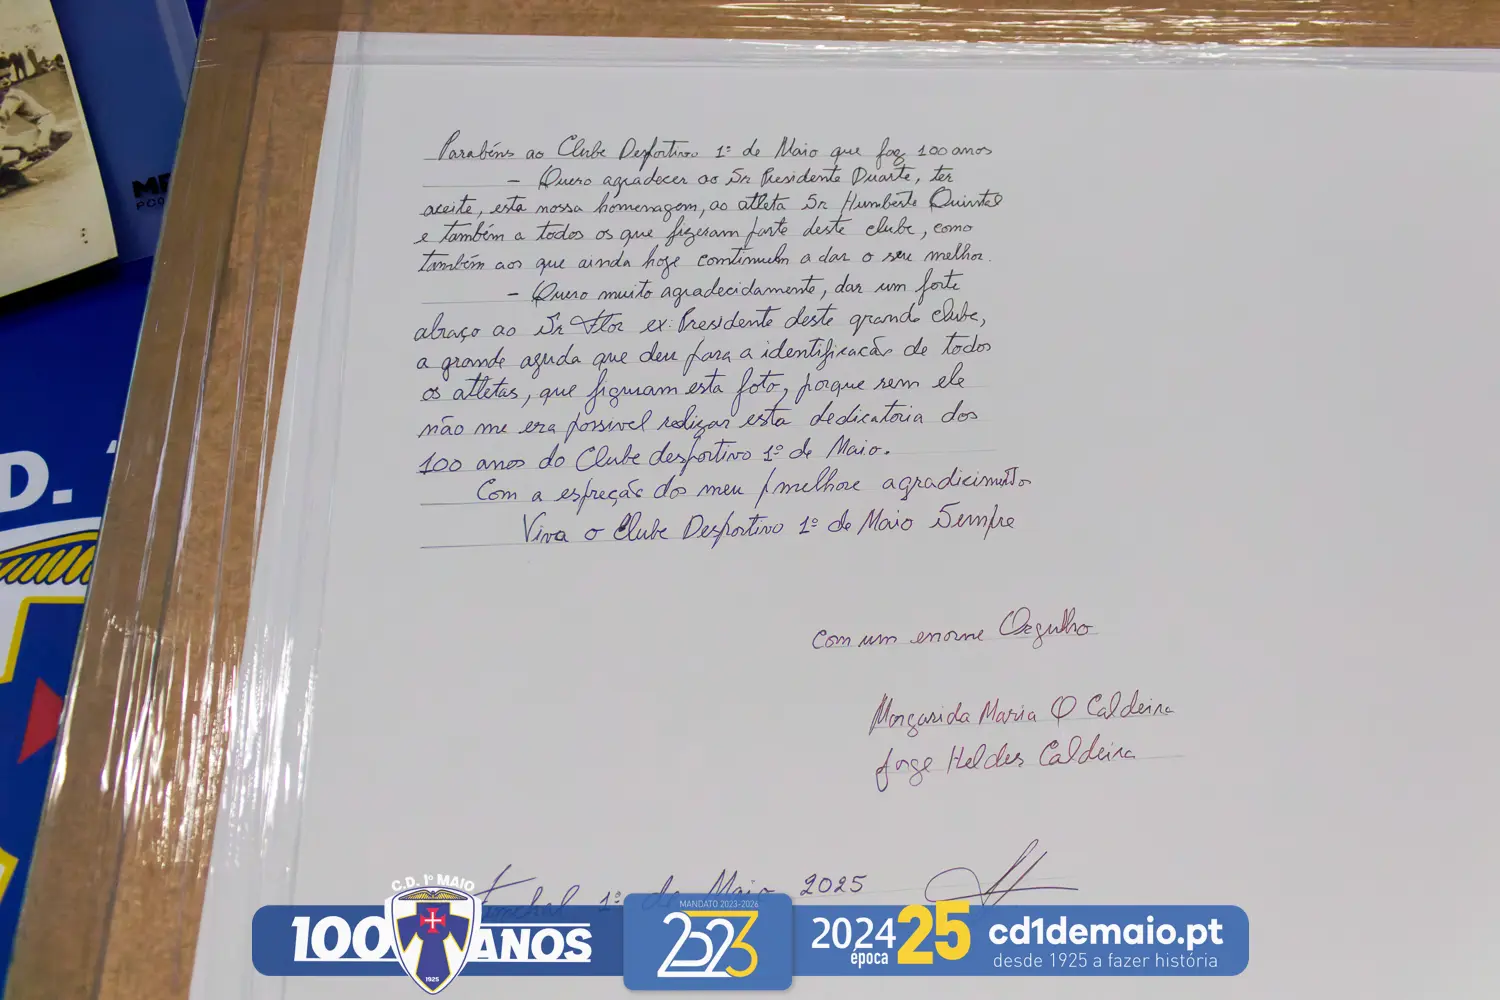 Parabéns ao Clube Desportivo 1º de Maio que faz 100 anos
- Quero agradecer ao Sr Presidente Duarte, ter
aceite, esta nossa homenagem, ao atleta Sr Humberto Quintal
e também a todos os que fizeram parte deste clube, como
também aos que ainda hoje continuem a dar o seu melhor.
- Quero muito agradecidamente, dar um forte
abraço ao Sr Flor ex: Presidente deste grande clube,
a grande ajuda que deu para a identificacão de todos
os atletas, que figuram esta foto, porque sem ele
não me era possivel realizar esta dedicatoria dos
100 anos do Clube desportivo 1º de Maio.
Com a espreção do meu melhore agradicimento
Viva o Clube Desportivo 1º de Maio Sempre
Com um enorme Orgulho
Margarida Maria O Caldeira
Jorge Helder Caldeira
Funchal 1º de Maio 2025
C.D. 1º MAIO
1925
100 ANOS
MANDATO 2023-2026
2023
2024
época
25
cd1demaio.pt
desde 1925 a fazer história
D.